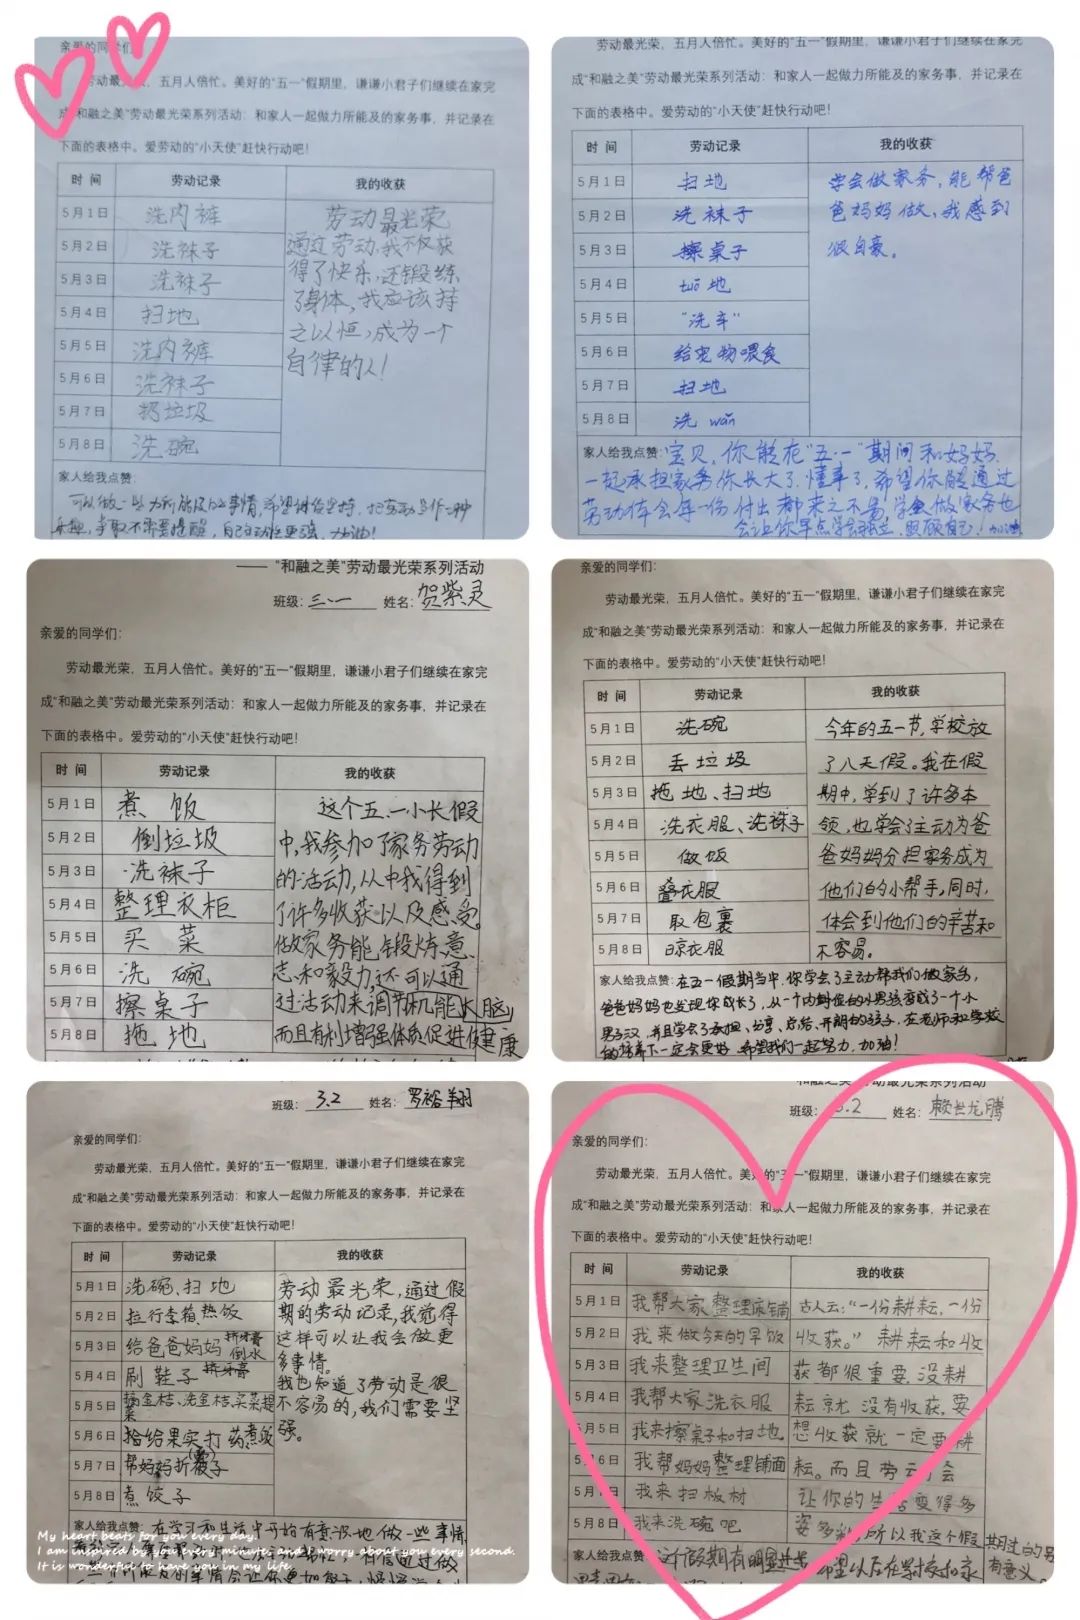 亲爱的同学们
劳动最光荣，五月人倍忙。美好的“五一”假期里，谦谦小君子们继续在家完
成“和融之美”劳动最光荣系列活动：和家人一起做力所能及的家务事，并记录在
下面的表格中。爱劳动的“小天使”赶快行动吧！
时 间 劳动记录 我的收获
5月1日 洗内裤 劳动最光荣
5月2日 洗袜子 通过劳动，我不仅获
5月3日 洗袜子 得了快乐，还锻练
5月4日 扫地 了身体，我应该持
5月5日 洗内裤 之以恒，成为一个
5月6日 洗袜子 自律的人！
5月7日 扔垃圾
5月8日 洗碗
家人给我点赞：
可以做一些力所能及的事情，希望
加油！
劳动最光荣，五月人倍忙。美好的“五一”假期里，谦谦小君子们继续在家完
成“和融之美”劳动最光荣系列活动：和家人一起做力所能及的家务事，并记录在
下面的表格中。爱劳动的“小天使”赶快行动吧！
时 间 劳动记录 我的收获
5月1日 扫地 学会做家务，能帮爸
5月2日 洗袜子 爸妈妈做，我感到
5月3日 擦桌子 很自豪。
5月4日 tuō地
5月5日 “洗车”
5月6日 给宠物喂食
5月7日 扫地
5月8日 洗wǎn
家人给我点赞：宝贝，你能在“五·一”期间和妈妈
一起承担家务你长大了，懂事了，希望你能通过
劳动体会每一份付出都来之不易，学会做家务也
会让你早点学会独立，照顾自己！加油
—— “和融之美”劳动最光荣系列活动
班级：三.一 姓名：贺紫灵
亲爱的同学们：
劳动最光荣，五月人倍忙。美好的“五一”假期里，谦谦小君子们继续在家完
成“和融之美”劳动最光荣系列活动：和家人一起做力所能及的家务事，并记录在
下面的表格中。爱劳动的“小天使”赶快行动吧！
时 间 劳动记录 我的收获
5月1日 煮饭 这个五.一小长假
5月2日 倒垃圾 中，我参加了家务劳动
5月3日 洗袜子 的活动，从中我得到
5月4日 整理衣柜 了许多收获以及感受。
5月5日 买菜 做家务能锻炼意
5月6日 洗碗 志和毅力，还可以通
5月7日 擦桌子 过活动来调节机能大脑，
5月8日 拖地 而且有利增强体质促进健康
亲爱的同学们：
劳动最光荣，五月人倍忙。美好的“五一”假期里，谦谦小君子们继续在家完
成“和融之美”劳动最光荣系列活动：和家人一起做力所能及的家务事，并记录在
下面的表格中。爱劳动的“小天使”赶快行动吧！
时 间 劳动记录 我的收获
5月1日 洗碗 今年的五一节，学校放
5月2日 丢垃圾 了八天假。我在假
5月3日 拖地、扫地 期中，学到了许多本
5月4日 洗衣服、洗袜子 领，也学会了主动为爸
5月5日 做饭 爸妈妈分担家务成为
5月6日 叠衣服 他们的小帮手，同时，
5月7日 取包裹 体会到他们的辛苦和
5月8日 晾衣服 不容易。
家人给我点赞：在五一假期当中，你学会了主动帮我们做家务，
爸爸妈妈也发现你成长了，从一个内向的小男孩变成了一个小
男子汉，并且学会了承担、分享、总结、开朗的孩子，在老师和学校
的培养下一定会更好，希望我们一起努力，加油！
班级：3.2 姓名：罗裕翔
亲爱的同学们：
劳动最光荣，五月人倍忙。美好的“五一”假期里，谦谦小君子们继续在家完
成“和融之美”劳动最光荣系列活动：和家人一起做力所能及的家务事，并记录在
下面的表格中。爱劳动的“小天使”赶快行动吧！
时 间 劳动记录 我的收获
5月1日 洗碗、扫地 劳动最光荣，通过假
5月2日 拉行李箱 热饭 期的劳动记录，我觉得
5月3日 给爸爸妈妈挤牙膏倒水 这样可以让我会做更
5月4日 刷鞋子 挤牙膏 多事情。
5月5日 摘金桔、洗金桔、买菜提菜 我也知道了劳动是很
5月6日 给果实打药煮饭 不容易的，我们需要坚
5月7日 帮妈妈折被子 强。
5月8日 煮饺子
家人给我点赞：在学习和生活中开始有意识地做一些事情
My heart beats for you every day.
I am inspired by you every minute, and I worry about you every second.
It is wonderful to have you in my life.
和融之美”劳动最光荣系列活动
班级：3.2 姓名：赖世龙腾
亲爱的同学们：
劳动最光荣，五月人倍忙。美好的“五一”假期里，谦谦小君子们继续在家完
成“和融之美”劳动最光荣系列活动：和家人一起做力所能及的家务事，并记录在
下面的表格中。爱劳动的“小天使”赶快行动吧！
时 间 劳动记录 我的收获
5月1日 我帮大家整理床铺 古人云：“一份耕耘，一份
5月2日 我来做今天的早饭 收获。”耕耘和收
5月3日 我来整理卫生间 获都很重要，没耕
5月4日 我帮大家洗衣服 耘就没有收获，要
5月5日 我来擦桌子和扫地 想收获就一定要耕
5月6日 我帮妈妈整理铺面 耘。而且劳动会
我来扫板材 让你的生活变得多
5月8日 我来洗碗吧 姿多彩所以我这个假期过的
有意义。
家人给我点赞：这个假期有明显进步，希望以后在学校和家